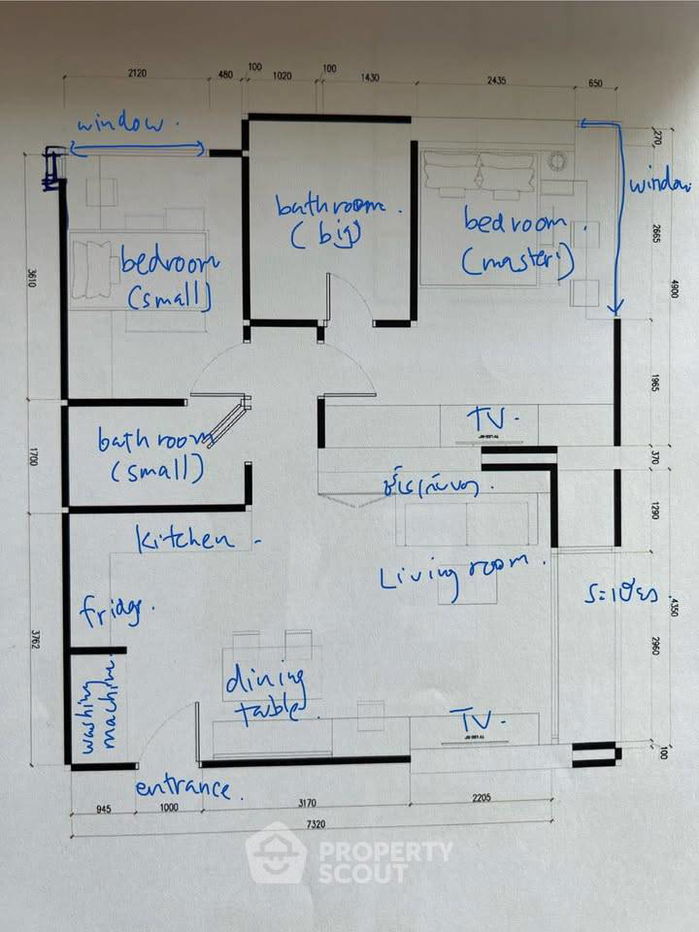 100 100
2120 480 1020 1430 2435 650
window.
270
window
bathroom.
(big)
bedroom.
(master)
2665
bedroom
(small)
3610
4900
1965
TV.
bathroom
(small)
1700
370
1290
Kitchen
Living room.
ระเบียง
4350
fridge.
3762
2960
dining
table
washing
machine
TV.
100
entrance.
945 1000 3170 2205
7320
PROPERTY
SCOUT